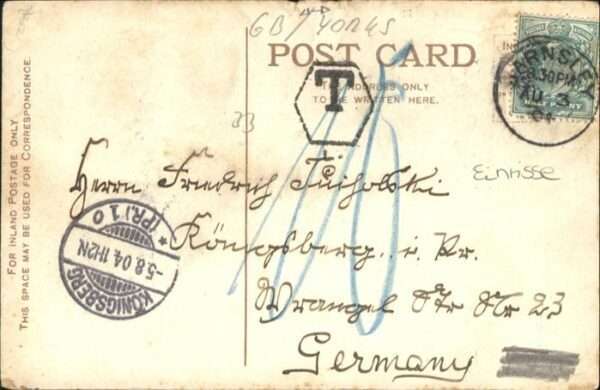 GB/YORKS
POST CARD
THE ADDRESS ONLY
TO BE WRITTEN HERE.
T
BARNSLEY
8.30PM
AU 3
04
FOR INLAND POSTAGE ONLY
THIS SPACE MAY BE USED FOR CORRESPONDENCE.
33
Einrisse
Herrn Friedrich Tucholski
Königsberg i. Pr.
Wrangel Str Nr 23
Germany
KÖNIGSBERG
-5.8.04.11-12N
* (PR.) 1 0
10